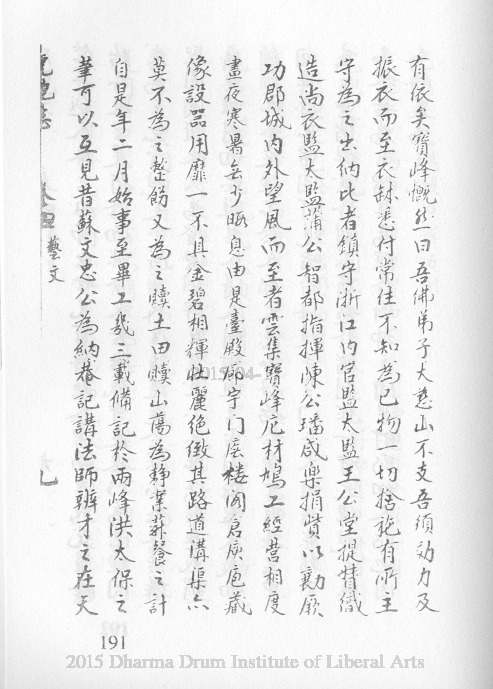 有依矣寶峰慨然曰吾佛弟子大慈山不支吾須効力及
振衣而至衣缽悉付常住不知為己物一切捨施有所主
守為之出納比者鎮守浙江內官監太監王公堂提督織
造尚衣監太監蒲公智都指揮陳公璠咸樂捐貲以勸厥
功郡城內外望風而至者雲集寶峰庀材鳩工經營相度
晝夜寒暑無少暇息由是臺殿廊宇门廡楼阁倉庾庖藏
像設器用靡一不具金碧相輝壯麗絕倫其路道溝渠亦
莫不為之整飭又為之贖土田贖山蕩為靜業薪餐之計
自是年二月始事至畢工幾三載備記於兩峰洪太保之
筆可以互見昔蘇文忠公為納菴記講法師辨才之在天
卷四 藝文 九
191
2015 Dharma Drum Institute of Liberal Arts